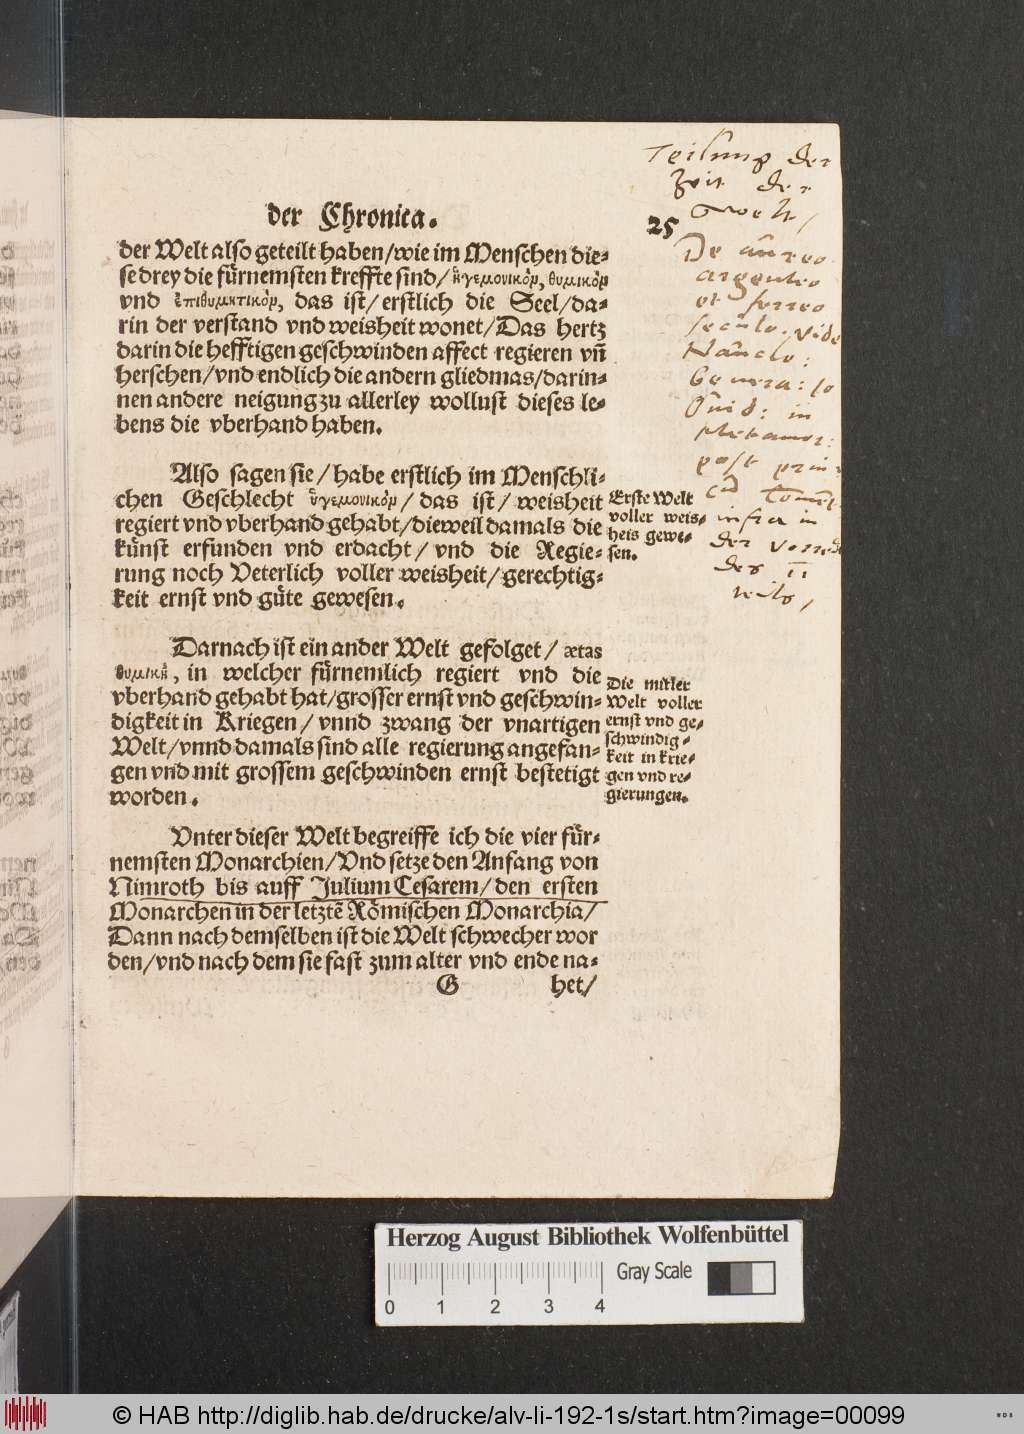 der Chronica.
25
der Welt also geteilt haben/wie im Menschen die-
se drey die fürnemsten kreffte sind/ἡγεμονικὸν, θυμικὸν
vnd ἐπιθυμητικὸν, das ist/erstlich die Seel/da-
rin der verstand vnd weisheit wonet/Das hertz
darin die hefftigen geschwinden affect regieren vñ
herschen/vnd endlich die andern gliedmas/darin-
nen andere neigung zu allerley wollust dieses le-
bens die vberhand haben.
Also sagen sie/habe erstlich im Menschli-
chen Geschlecht ἡγεμονικὸν/das ist/weisheit
regiert vnd vberhand gehabt/dieweil damals die
künst erfunden vnd erdacht/vnd die Regie-
rung noch Veterlich voller weisheit/gerechtig-
keit ernst vnd güte gewesen.
Erste Welt
voller weis-
heis gewe-
sen.
Darnach ist ein ander Welt gefolget/ætas
θυμικὴ, in welcher fürnemlich regiert vnd die
vberhand gehabt hat/grosser ernst vnd geschwin-
digkeit in Kriegen/vnnd zwang der vnartigen
Welt/vnnd damals sind alle regierung angefan-
gen vnd mit grossem geschwinden ernst bestetigt
worden.
Die mitler
Welt voller
ernst vnd ge-
schwindig-
keit in krie-
gen vnd re-
gierungen.
Vnter dieser Welt begreiffe ich die vier für-
nemsten Monarchien/Vnd setze den Anfang von
Nimroth bis auff Julium Cesarem/den ersten
Monarchen in der letztē Römischen Monarchia/
Dann nach demselben ist die Welt schwecher wor
den/vnd nach dem sie fast zum alter vnd ende na-
G het/
Teilung der
Zeit der
Welt/
De aureo
argenteo
et ferreo
seculo. vide
Nauclo:
Genera:
Ouid: in
Metamor:
post prin
infra in
der vorrede
des II
teils/
Herzog August Bibliothek Wolfenbüttel
0 1 2 3 4
Gray Scale
© HAB http://diglib.hab.de/drucke/alv-li-192-1s/start.htm?image=00099